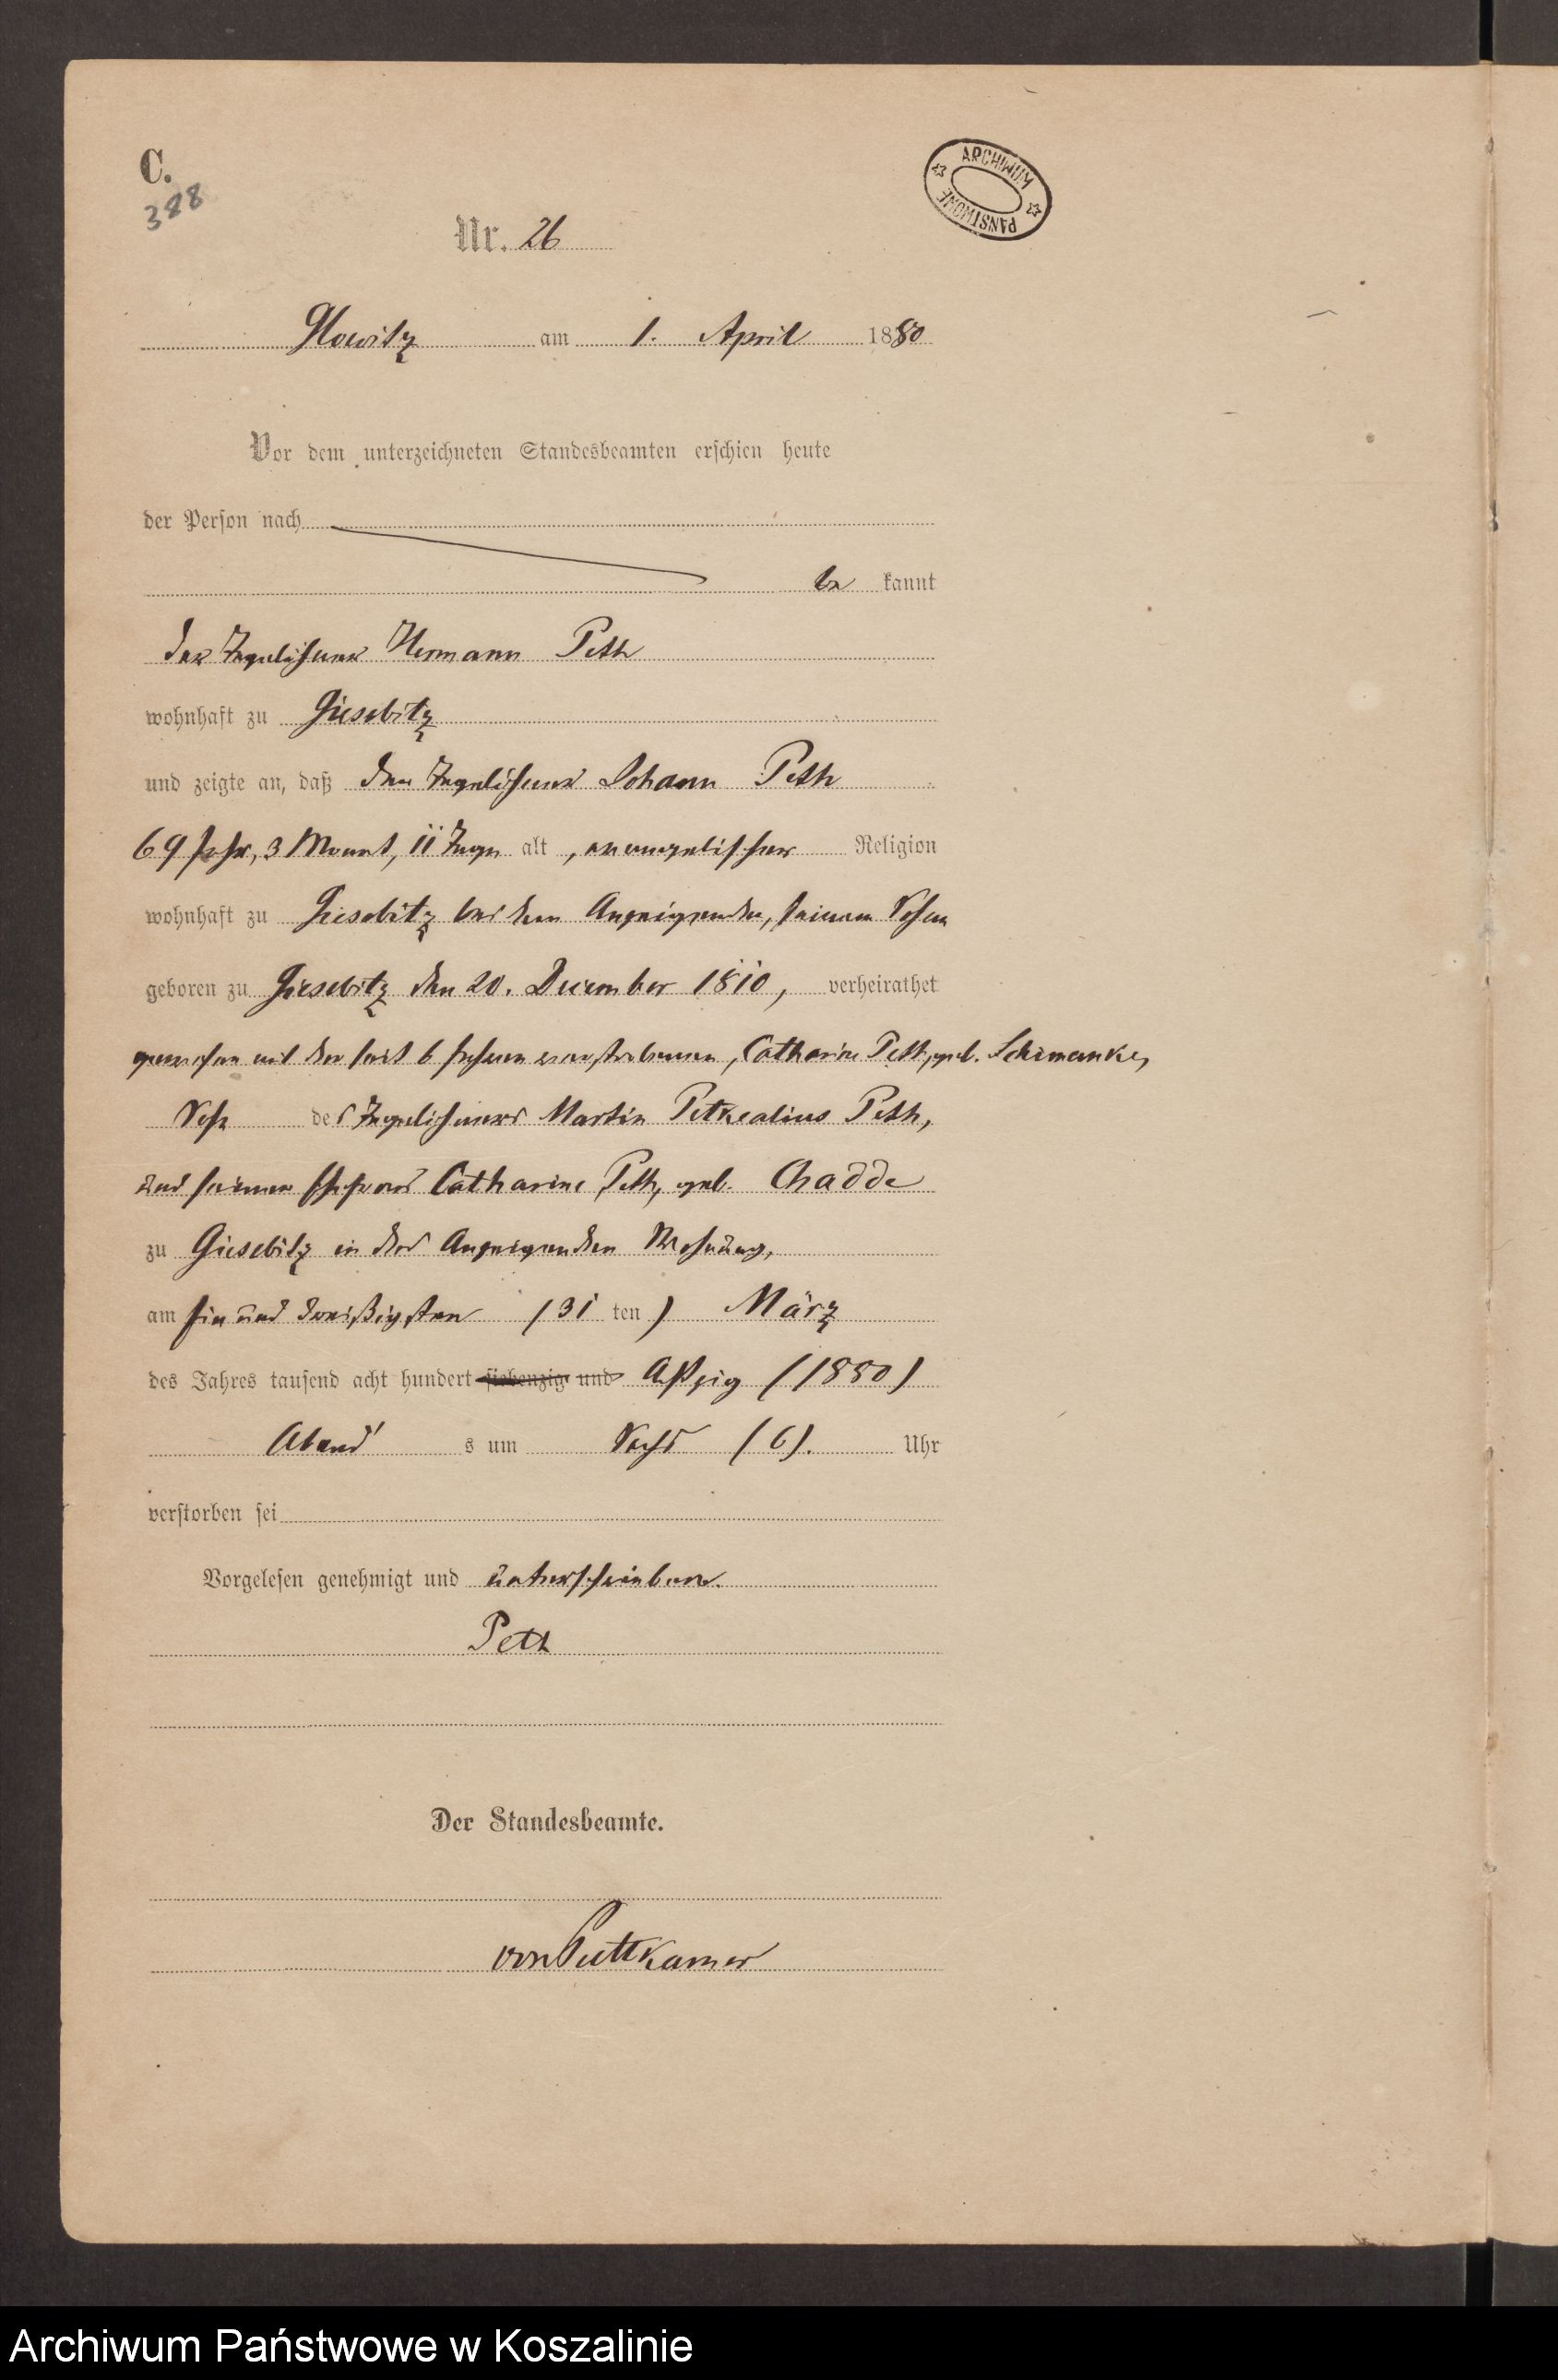 C.
388
ARCHIWUM PAŃSTWOWE
Nr. 26
Glowitz am 1. April 1880
Vor dem unterzeichneten Standesbeamten erschien heute
der Person nach
be kannt
der Tagelöhner Hermann Peth
wohnhaft zu Giesebitz
und zeigte an, daß der Tagelöhner Johann Peth
69 Jahr, 3 Monat, 11 Tage alt, evangelischer Religion
wohnhaft zu Giesebitz bei dem Anzeigenden, seinem Sohne
geboren zu Giesebitz den 20. December 1810, verheirathet
gewesen mit der seit 6 Jahren verstorbenen, Catharine Peth, geb. Schimanke,
Sohn des Tagelöhners Martin Peth,
und seiner Ehefrau Catharine Peth, geb. Chadde
zu Giesebitz in des Anzeigenden Wohnung,
am ein und dreißigsten (31 ten) März
des Jahres tausend acht hundert siebenzig und Achtzig (1880)
Abend s um Sechs (6). Uhr
verstorben sei
Vorgelesen genehmigt und unterschrieben.
Peth
Der Standesbeamte.
von Puttkamer
Archiwum Państwowe w Koszalinie